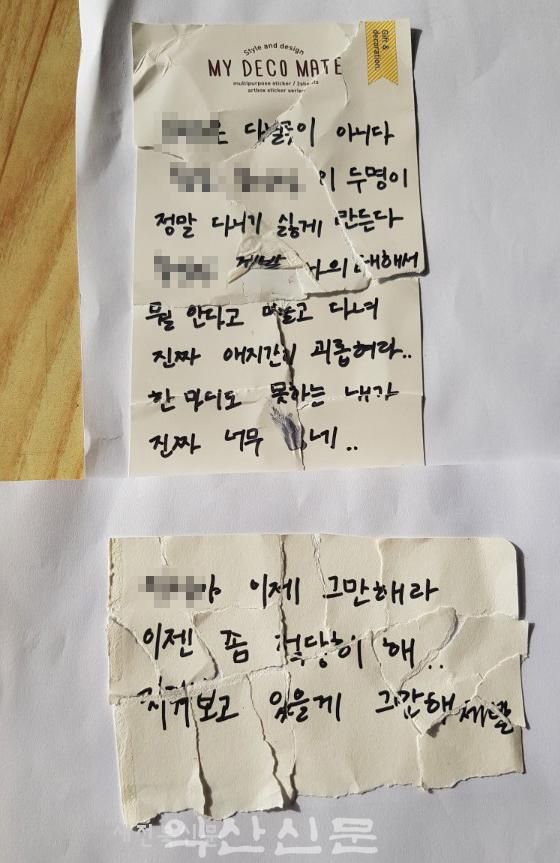 Style and design
MY DECO MATE
multipurpose sticker /
artbox sticker series
Gift &
decoration
다닐곳이 아니다
이 두명이
정말 다니기 싫게 만든다
제발 나의 대해서
뭘 안다고 떠들고 다녀
진짜 애지간히 괴롭혀라..
한마디도 못하는 내가
진짜 너무 네..
야 이제 그만해라
이젠 좀 적당히 해..
지켜보고 있을게 그만해 제발
약산신문